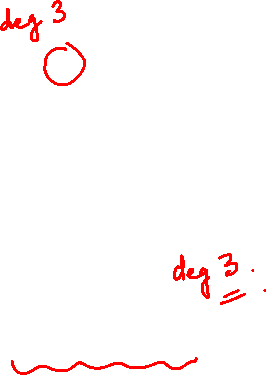 deg 3
deg 3.